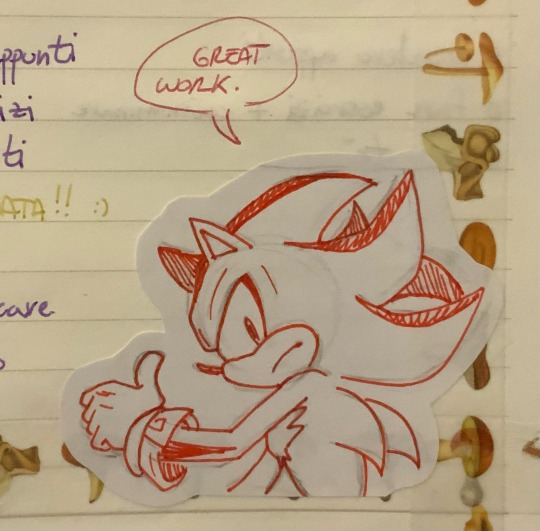 GREAT
WORK.
ppunti
izi
ti
ATA!! :)
care
o